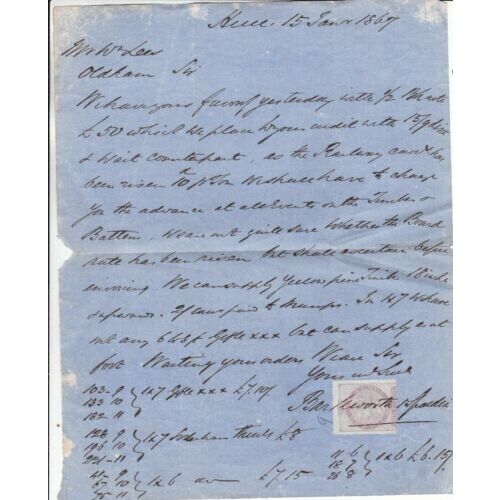 Hull 15 Jany 1867
Mr Wm Lees
Oldham Sir
We have yours favor of yesterday with 1/2 Bk note
£50 which we place to your credit with 15/9 disct
& wait counterpart, as the Railway cards has
been risen to p Ton We shall have to charge
you the advance at all Events on the Timber &
Battens, we are not quite sure whether the Board
rate has been risen but shall ascertain before
invoicing We can supply Yellow pine
In 1x7 we have
not any Gefle xxx but can supply as at
foot Waiting your orders We are Sir
Yours
Barkworth & Spaldin
103-9
133 10
182 11
1x7 Gefle xxx £7.10/
128 9
196 10
241-11
1x7 Soderham thirds £8
9
10
11
1x6 £7.15
11-6
18 7
26 8
1x6 £6.15/